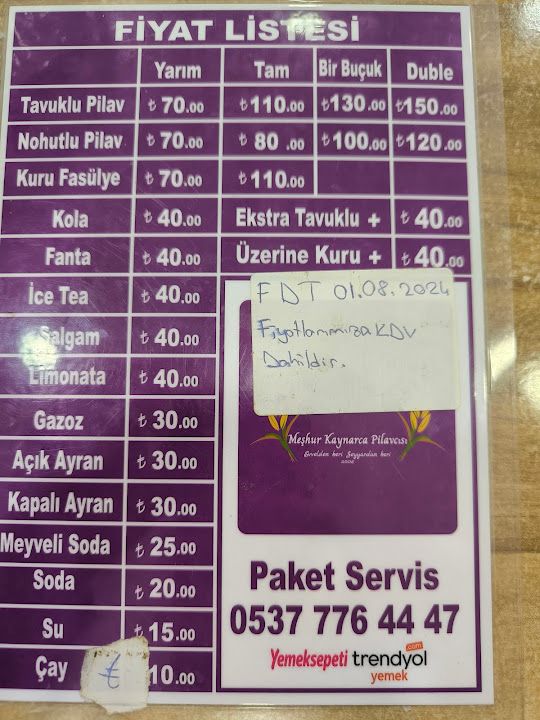 FİYAT LİSTESİ
Yarım Tam Bir Buçuk Duble
Tavuklu Pilav ₺ 70.00 ₺110.00 ₺130.00 ₺150.00
Nohutlu Pilav ₺ 70.00 ₺ 80.00 ₺100.00 ₺120.00
Kuru Fasülye ₺ 70.00 ₺110.00
Kola ₺ 40.00 Ekstra Tavuklu + ₺ 40.00
Fanta ₺ 40.00 Üzerine Kuru + ₺ 40.00
İce Tea ₺ 40.00
Şalgam ₺ 40.00
Limonata ₺ 40.00
Gazoz ₺ 30.00
Açık Ayran ₺ 30.00
Kapalı Ayran ₺ 30.00
Meyveli Soda ₺ 25.00
Soda ₺ 20.00
Su ₺ 15.00
Çay ₺ 10.00
FDT 01.08.2024
Fiyatlarımıza KDV
Dahildir.
Meşhur Kaynarca Pilavcısı
Evvelden beri Seyyardan beri
Paket Servis
0537 776 44 47
Yemeksepeti trendyol.com
yemek